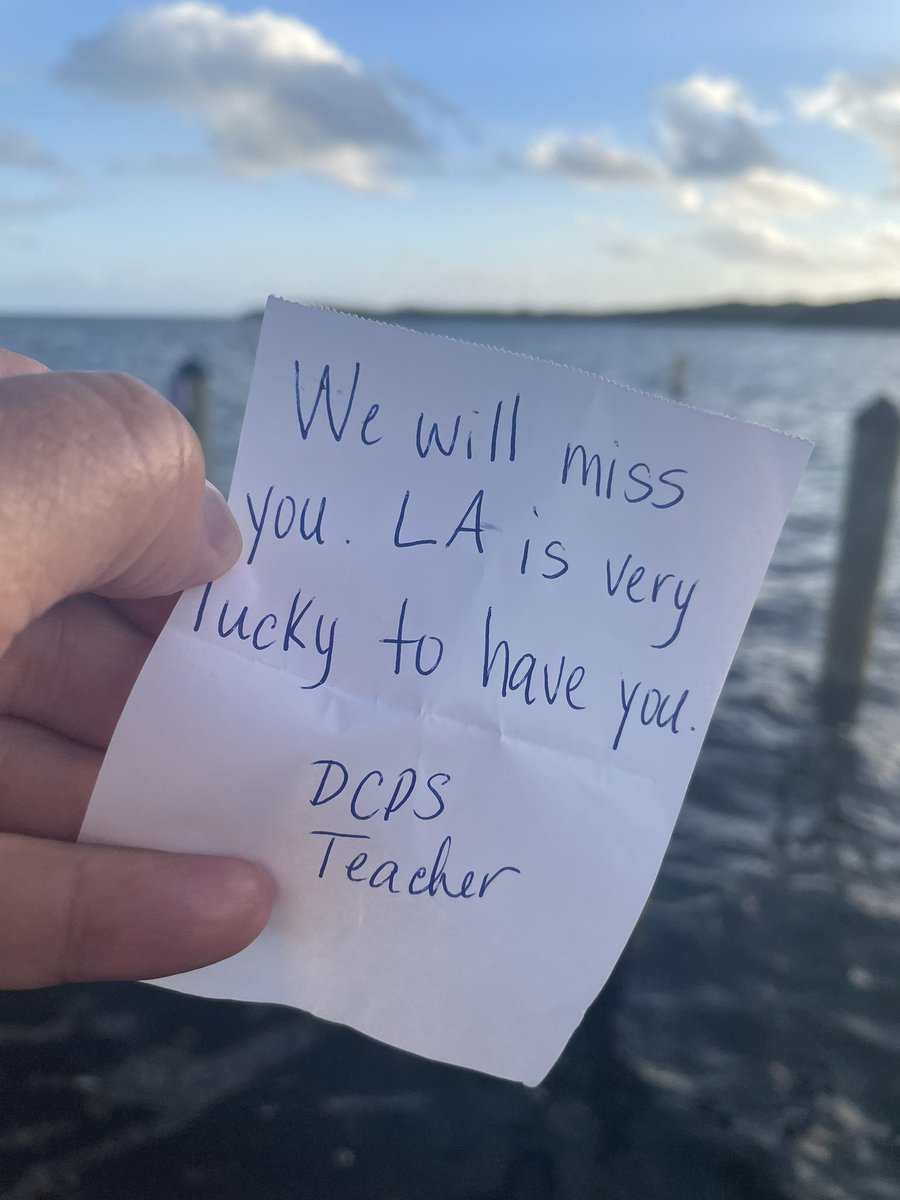 We will miss
you. LA is very
lucky to have you.
DCPS
Teacher